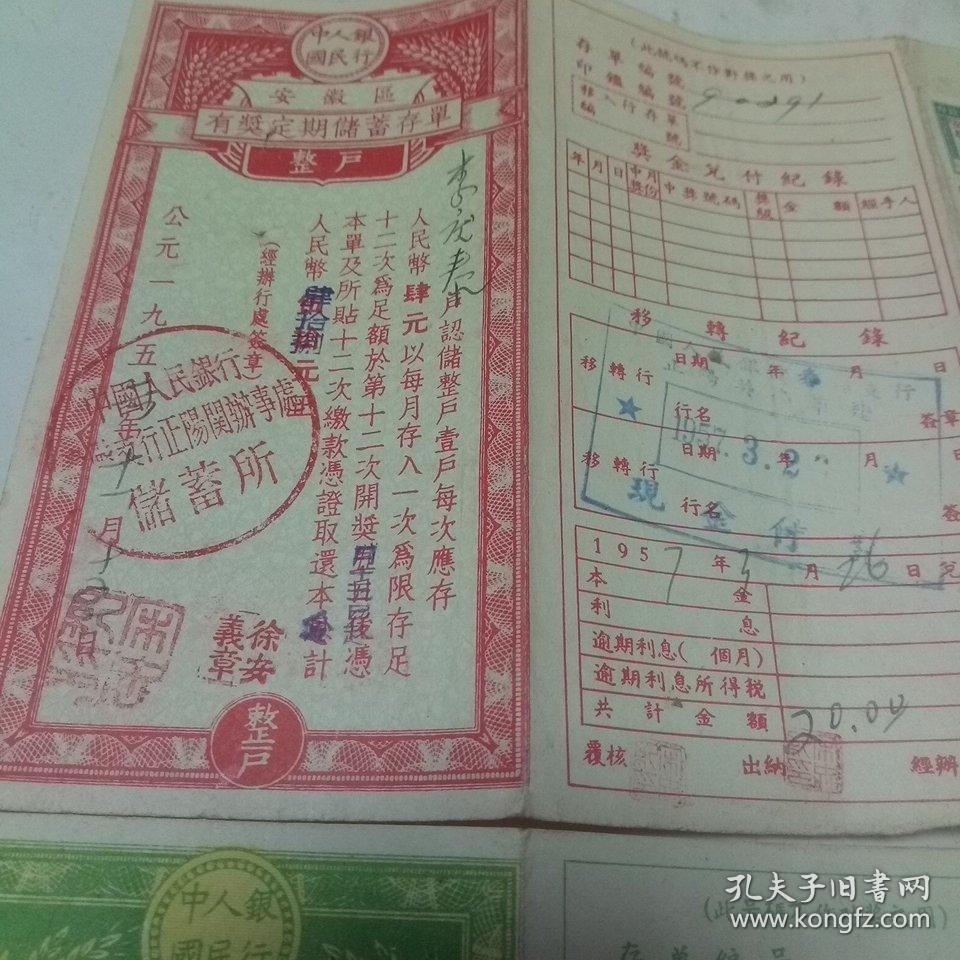 中人銀
國民行
安徽區
有獎定期儲蓄存單
整戶
認儲整戶壹戶每次應存
人民幣肆元以每月存入一次爲限存足
十二次爲足額於第十二次開獎
本單及所貼十二次繳款憑證取還本
人民幣
拾捌元
(經辦行處簽章)
公元一九五
年
月
中國人民銀行
行正陽關辦事處
儲蓄所
徐安
義章
整戶
(此號碼不作對獎之用)
存單編號 90291
印鑑編號
移入行存單
編號
獎金兌付紀錄
年 月 日 中獎月份 中獎號碼 獎級 金額 經手人
移轉紀錄
移轉行 日期 年 月 日
行名 簽章
移轉行 日期 年 月 日
行名 簽
1957.3.2
現金付
1957年3月26日兌
本金
利息
逾期利息( 個月)
逾期利息所得稅
共計金額 20.04
覆核 出納 經辦
中人銀
國民行
孔夫子旧书网
www.kongfz.com